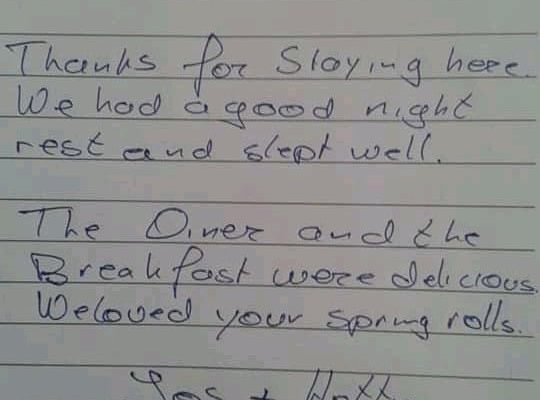 Thanks for Staying here.
We had a good night
rest and slept well.
The Diner and the
Breakfast were delicious.
We loved your spring rolls.